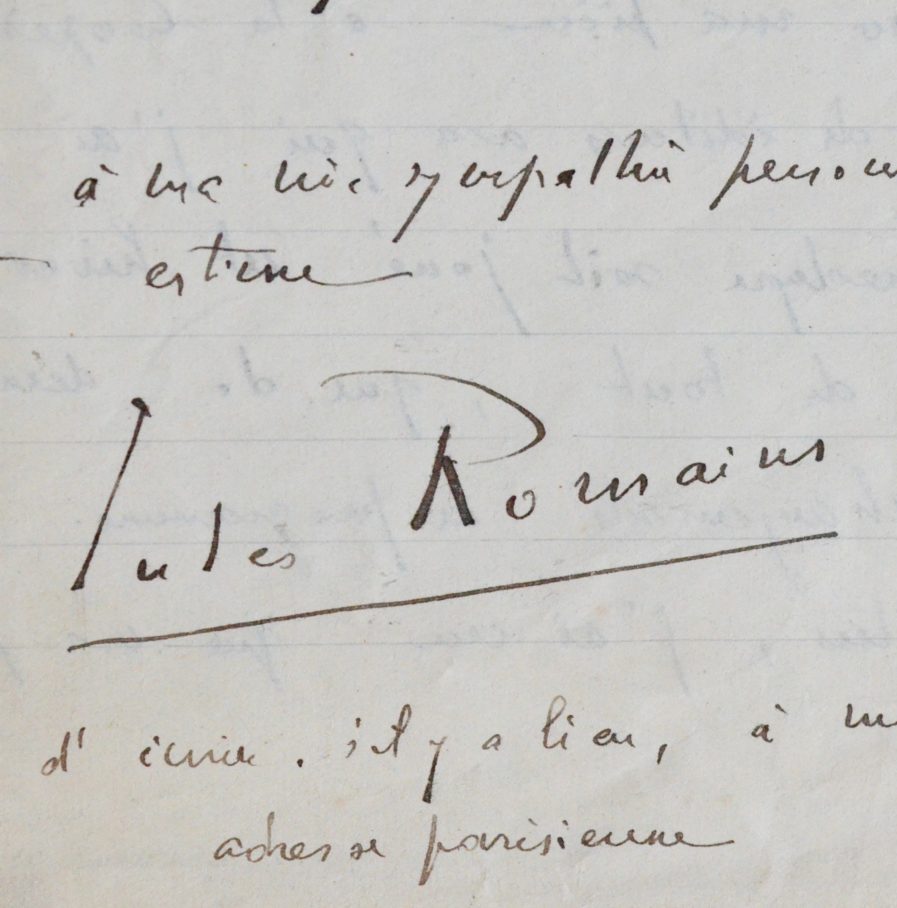 à ma vive sympathie person
estime
Jules Romains
d'écrire, s'il y a lieu, à m
adresse parisienne